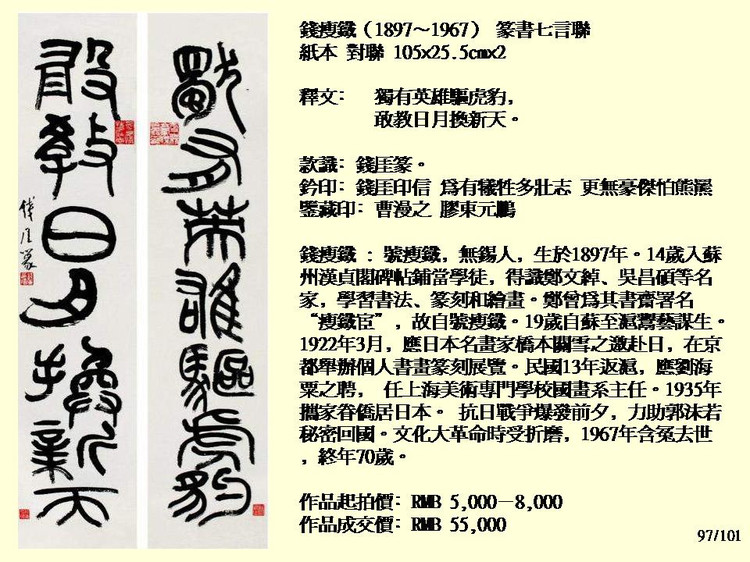 獨有英雄驅虎豹
敢教日月換新天
錢厓篆
錢瘦鐵（1897～1967） 篆書七言聯
紙本 對聯 105x25.5cmx2
釋文: 獨有英雄驅虎豹，
敢教日月換新天。
款識: 錢厓篆。
鈐印: 錢厓印信 爲有犧牲多壯志 更無豪傑怕熊羆
鑒藏印: 曹漫之 膠東元鵬
錢瘦鐵 : 號瘦鐵，無錫人，生於1897年。14歲入蘇
州漢貞閣碑帖鋪當學徒，得識鄭文焯、吳昌碩等名
家，學習書法、篆刻和繪畫。鄭曾爲其書齋署名
“瘦鐵宧”，故自號瘦鐵。19歲自蘇至滬鬻藝謀生。
1922年3月，應日本名畫家橋本關雪之邀赴日，在京
都舉辦個人書畫篆刻展覽。民國13年返滬，應劉海
粟之聘， 任上海美術專門學校國畫系主任。1935年
攜家眷僑居日本。 抗日戰爭爆發前夕，力助郭沫若
秘密回國。文化大革命時受折磨，1967年含冤去世
，終年70歲。
作品起拍價: RMB 5,000－8,000
作品成交價: RMB 55,000
97/101